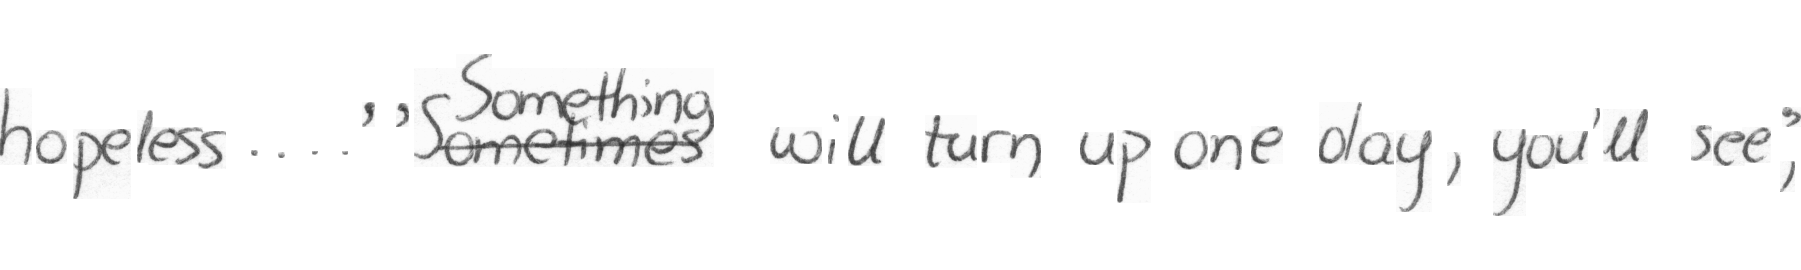 hopeless .... ’’ Something will turn up one day, you'll see’,